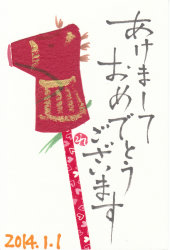 あけまして
おめでとう
ございます
2014.1.1